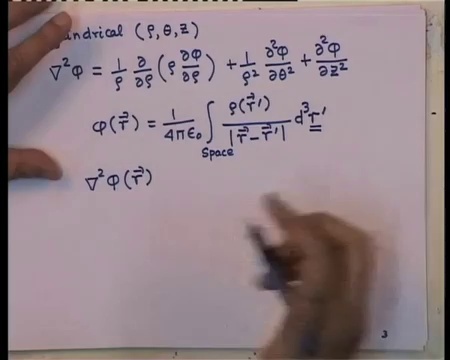 undrical (ρ, θ, z)
∇²φ = 1/ρ ∂/∂ρ (ρ ∂φ/∂ρ) + 1/ρ² ∂²φ/∂θ² + ∂²φ/∂z²
φ(r⃗) = 1/4πε₀ ∫_Space ρ(r⃗′)/|r⃗−r⃗′| d³r′
∇²φ(r⃗)
3